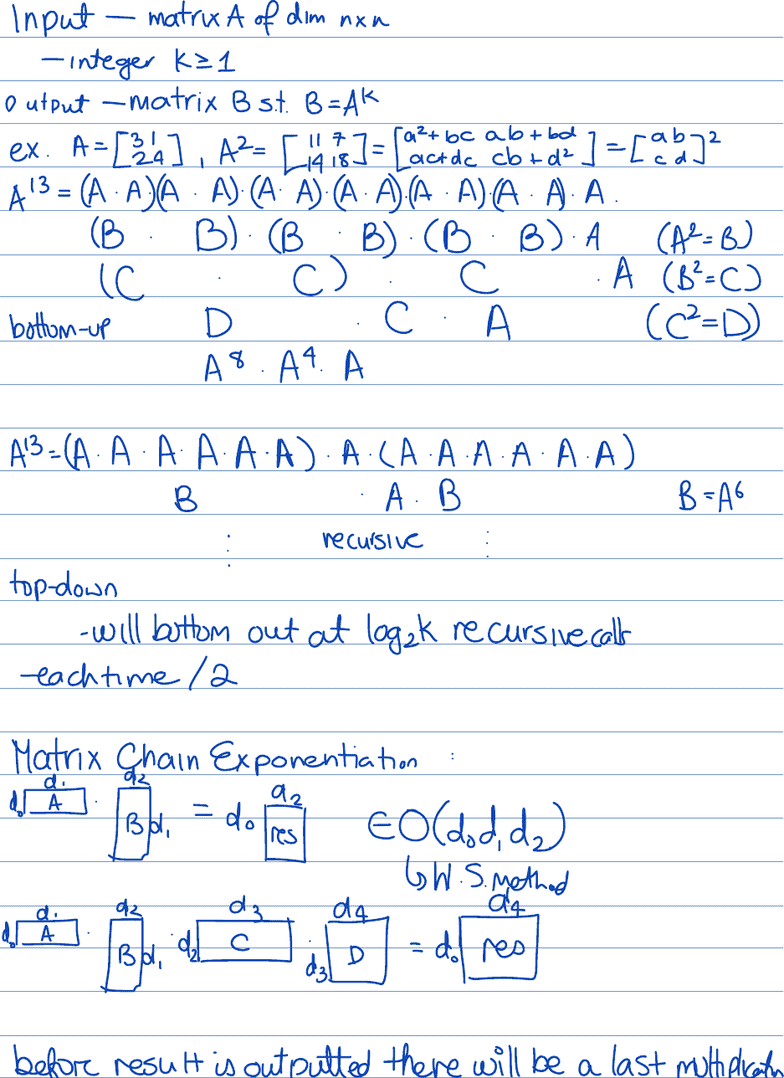 Input — matrix A of dim n×n
- integer K≥1
output — matrix B s.t. B=A^K
ex. A=[3 1; 2 4], A²=[11 7; 14 18]=[a²+bc ab+bd; ac+dc cb+d²]=[a b; c d]²
A¹³=(A·A)(A·A)·(A·A)·(A·A)·(A·A)(A·A)·A.
(B·B)·(B·B)·(B·B)·A (A²=B)
(C·C)·C·A (B²=C)
bottom-up D·C·A (C²=D)
A⁸·A⁴·A
A¹³=(A·A·A·A·A·A)·A·(A·A·A·A·A·A)
B·A·B B=A⁶
⋮ recursive ⋮
top-down
-will bottom out at log₂K recursive calls
-each time /2
Matrix Chain Exponentiation :
d₁ d₂ d₂
d₀ A · B d₁ = d₀ res ∈O(d₀d₁d₂)
↳W.S. Method
d₁ d₂ d₃ d₄ d₄
d₀ A · B d₁ d₂ C d₃ D = d₀ res
before result is outputted there will be a last multiplication